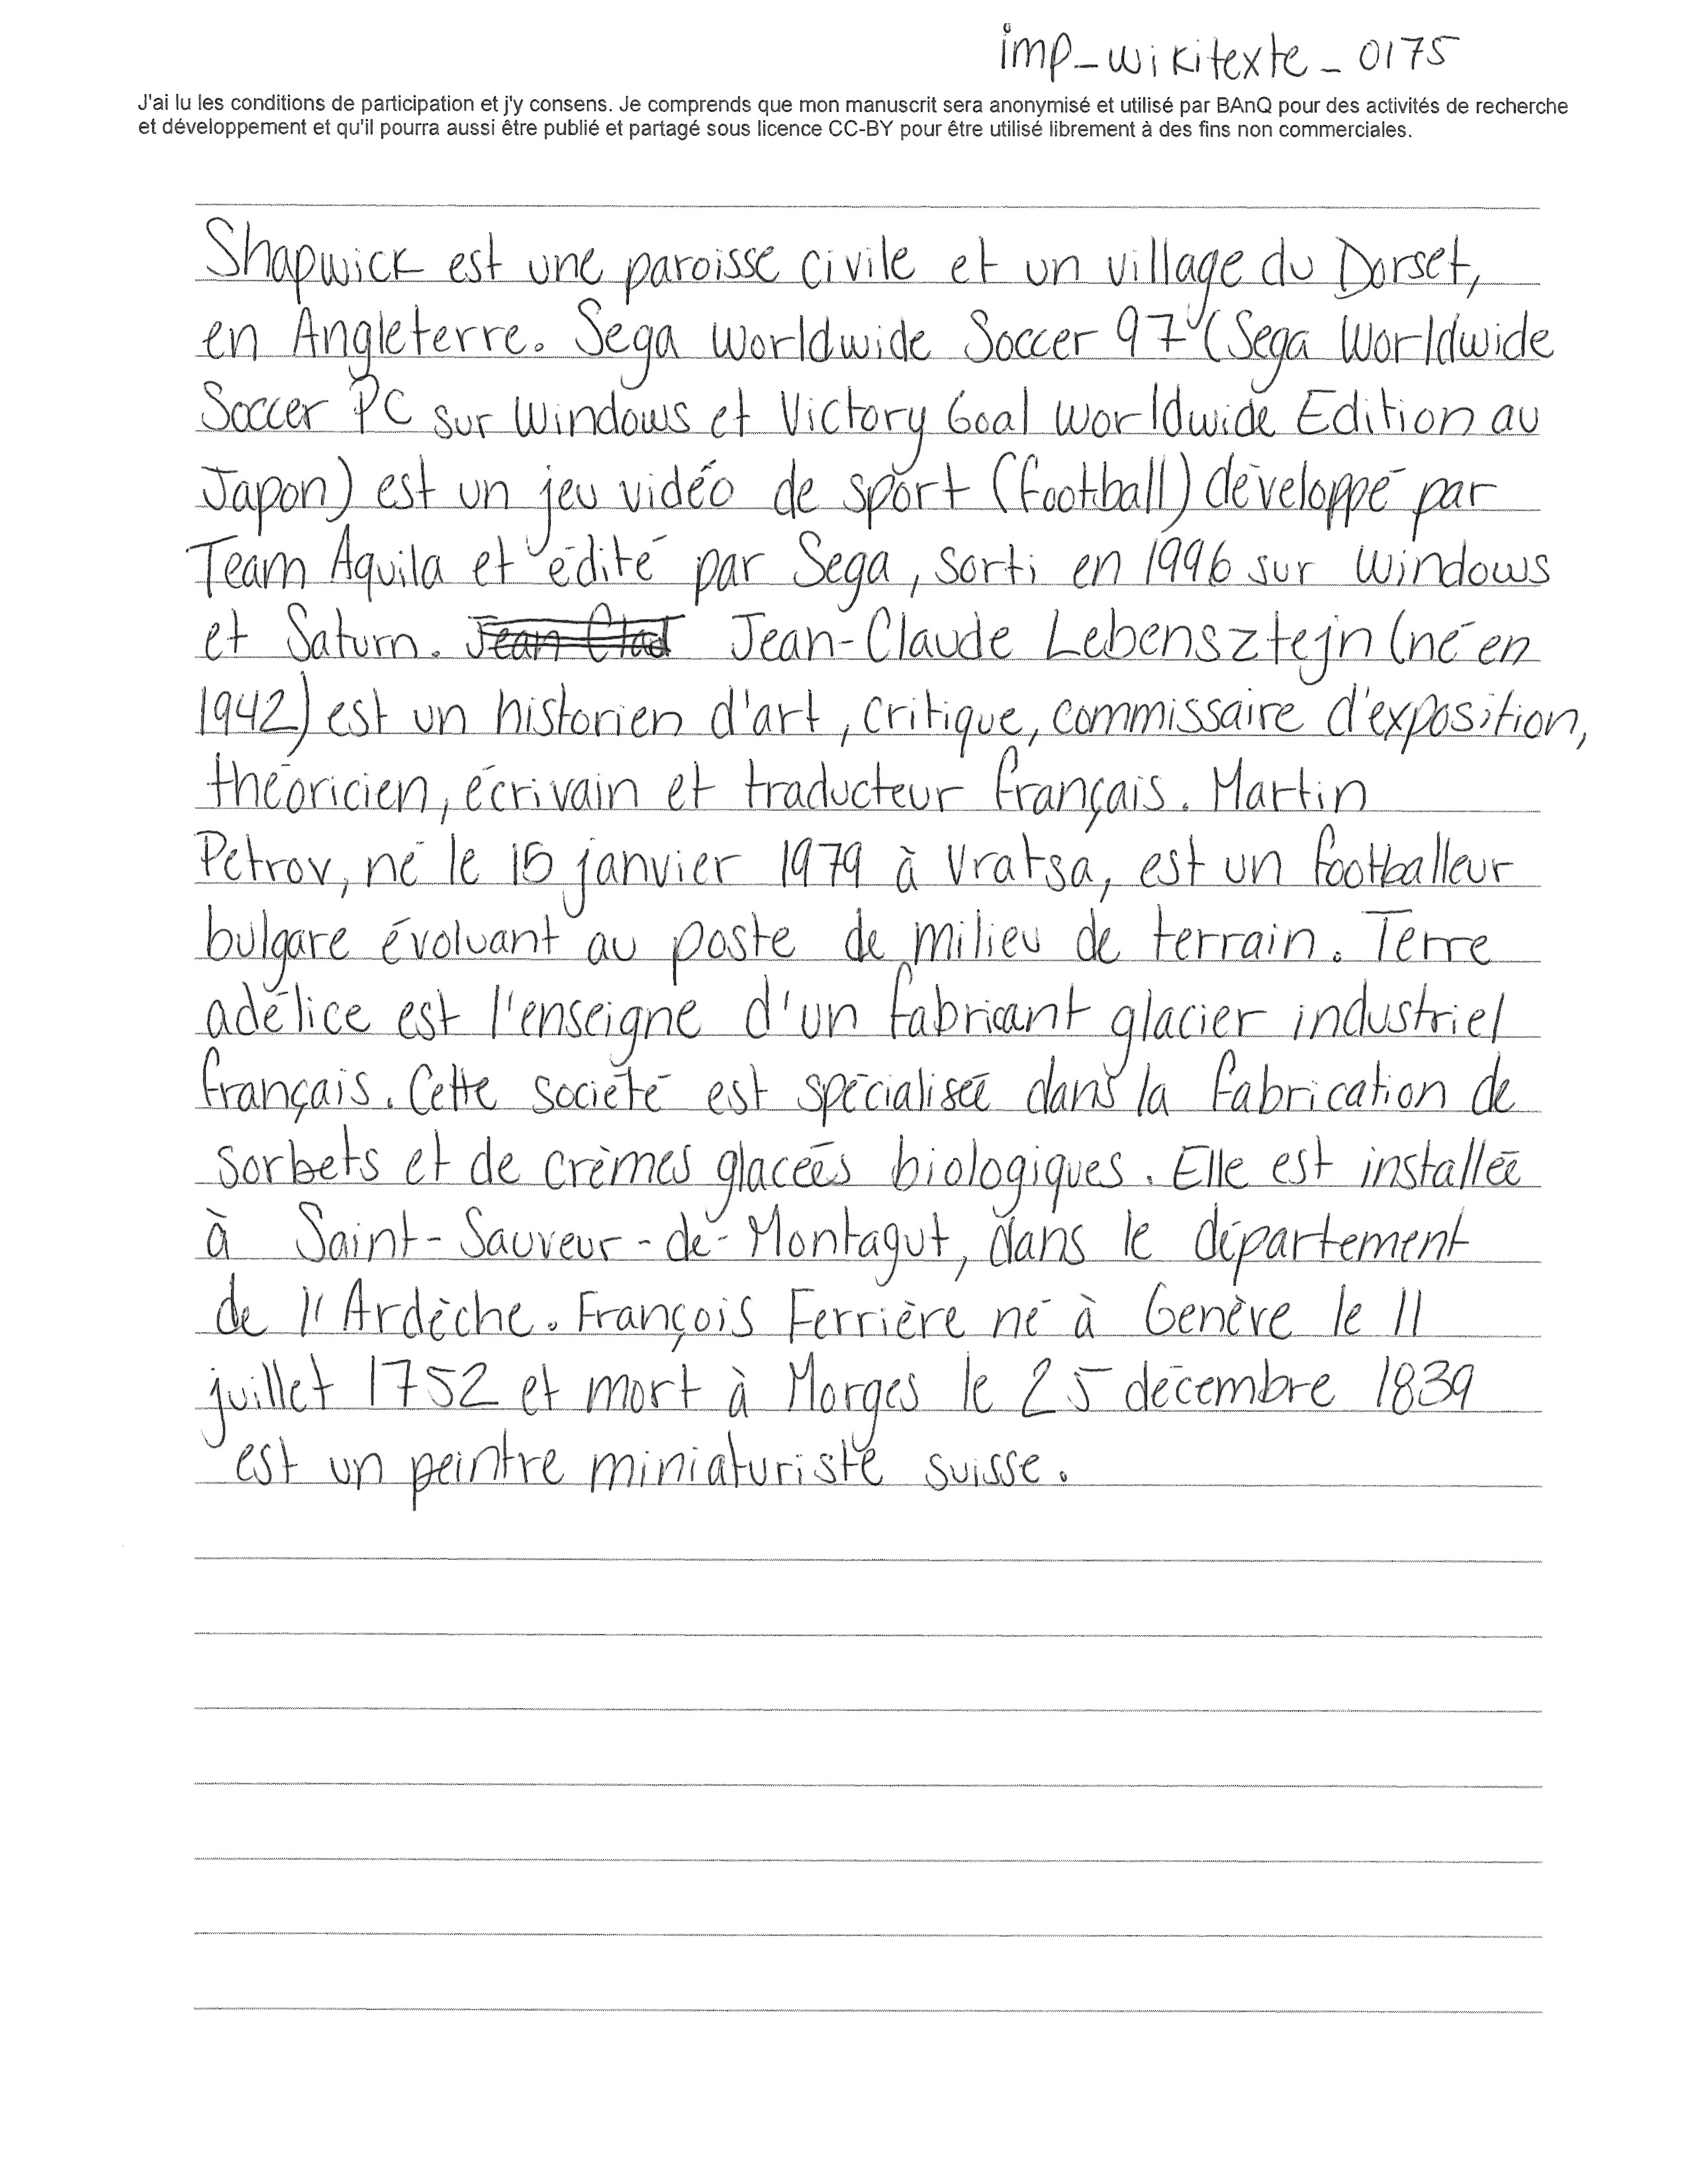 imp_wikitexte_0175
J'ai lu les conditions de participation et j'y consens. Je comprends que mon manuscrit sera anonymisé et utilisé par BAnQ pour des activités de recherche
et développement et qu'il pourra aussi être publié et partagé sous licence CC-BY pour être utilisé librement à des fins non commerciales.
Shapwick est une paroisse civile et un village du Dorset,
en Angleterre. Sega Worldwide Soccer 97 (Sega Worldwide
Soccer PC sur Windows et Victory Goal Worldwide Edition au
Japon) est un jeu vidéo de sport (football) développé par
Team Aquila et édité par Sega, sorti en 1996 sur Windows
et Saturn. Jean Clad Jean-Claude Lebensztejn (né en
1942) est un historien d'art, critique, commissaire d'exposition,
théoricien, écrivain et traducteur français. Martin
Petrov, né le 15 janvier 1979 à Vratsa, est un footballeur
bulgare évoluant au poste de milieu de terrain. Terre
adélice est l'enseigne d'un fabricant glacier industriel
français. Cette société est spécialisée dans la fabrication de
sorbets et de crèmes glacées biologiques. Elle est installée
à Saint-Sauveur-de-Montagut, dans le département
de l'Ardèche. François Ferrière né à Genève le 11
juillet 1752 et mort à Morges le 25 décembre 1839
est un peintre miniaturiste suisse.